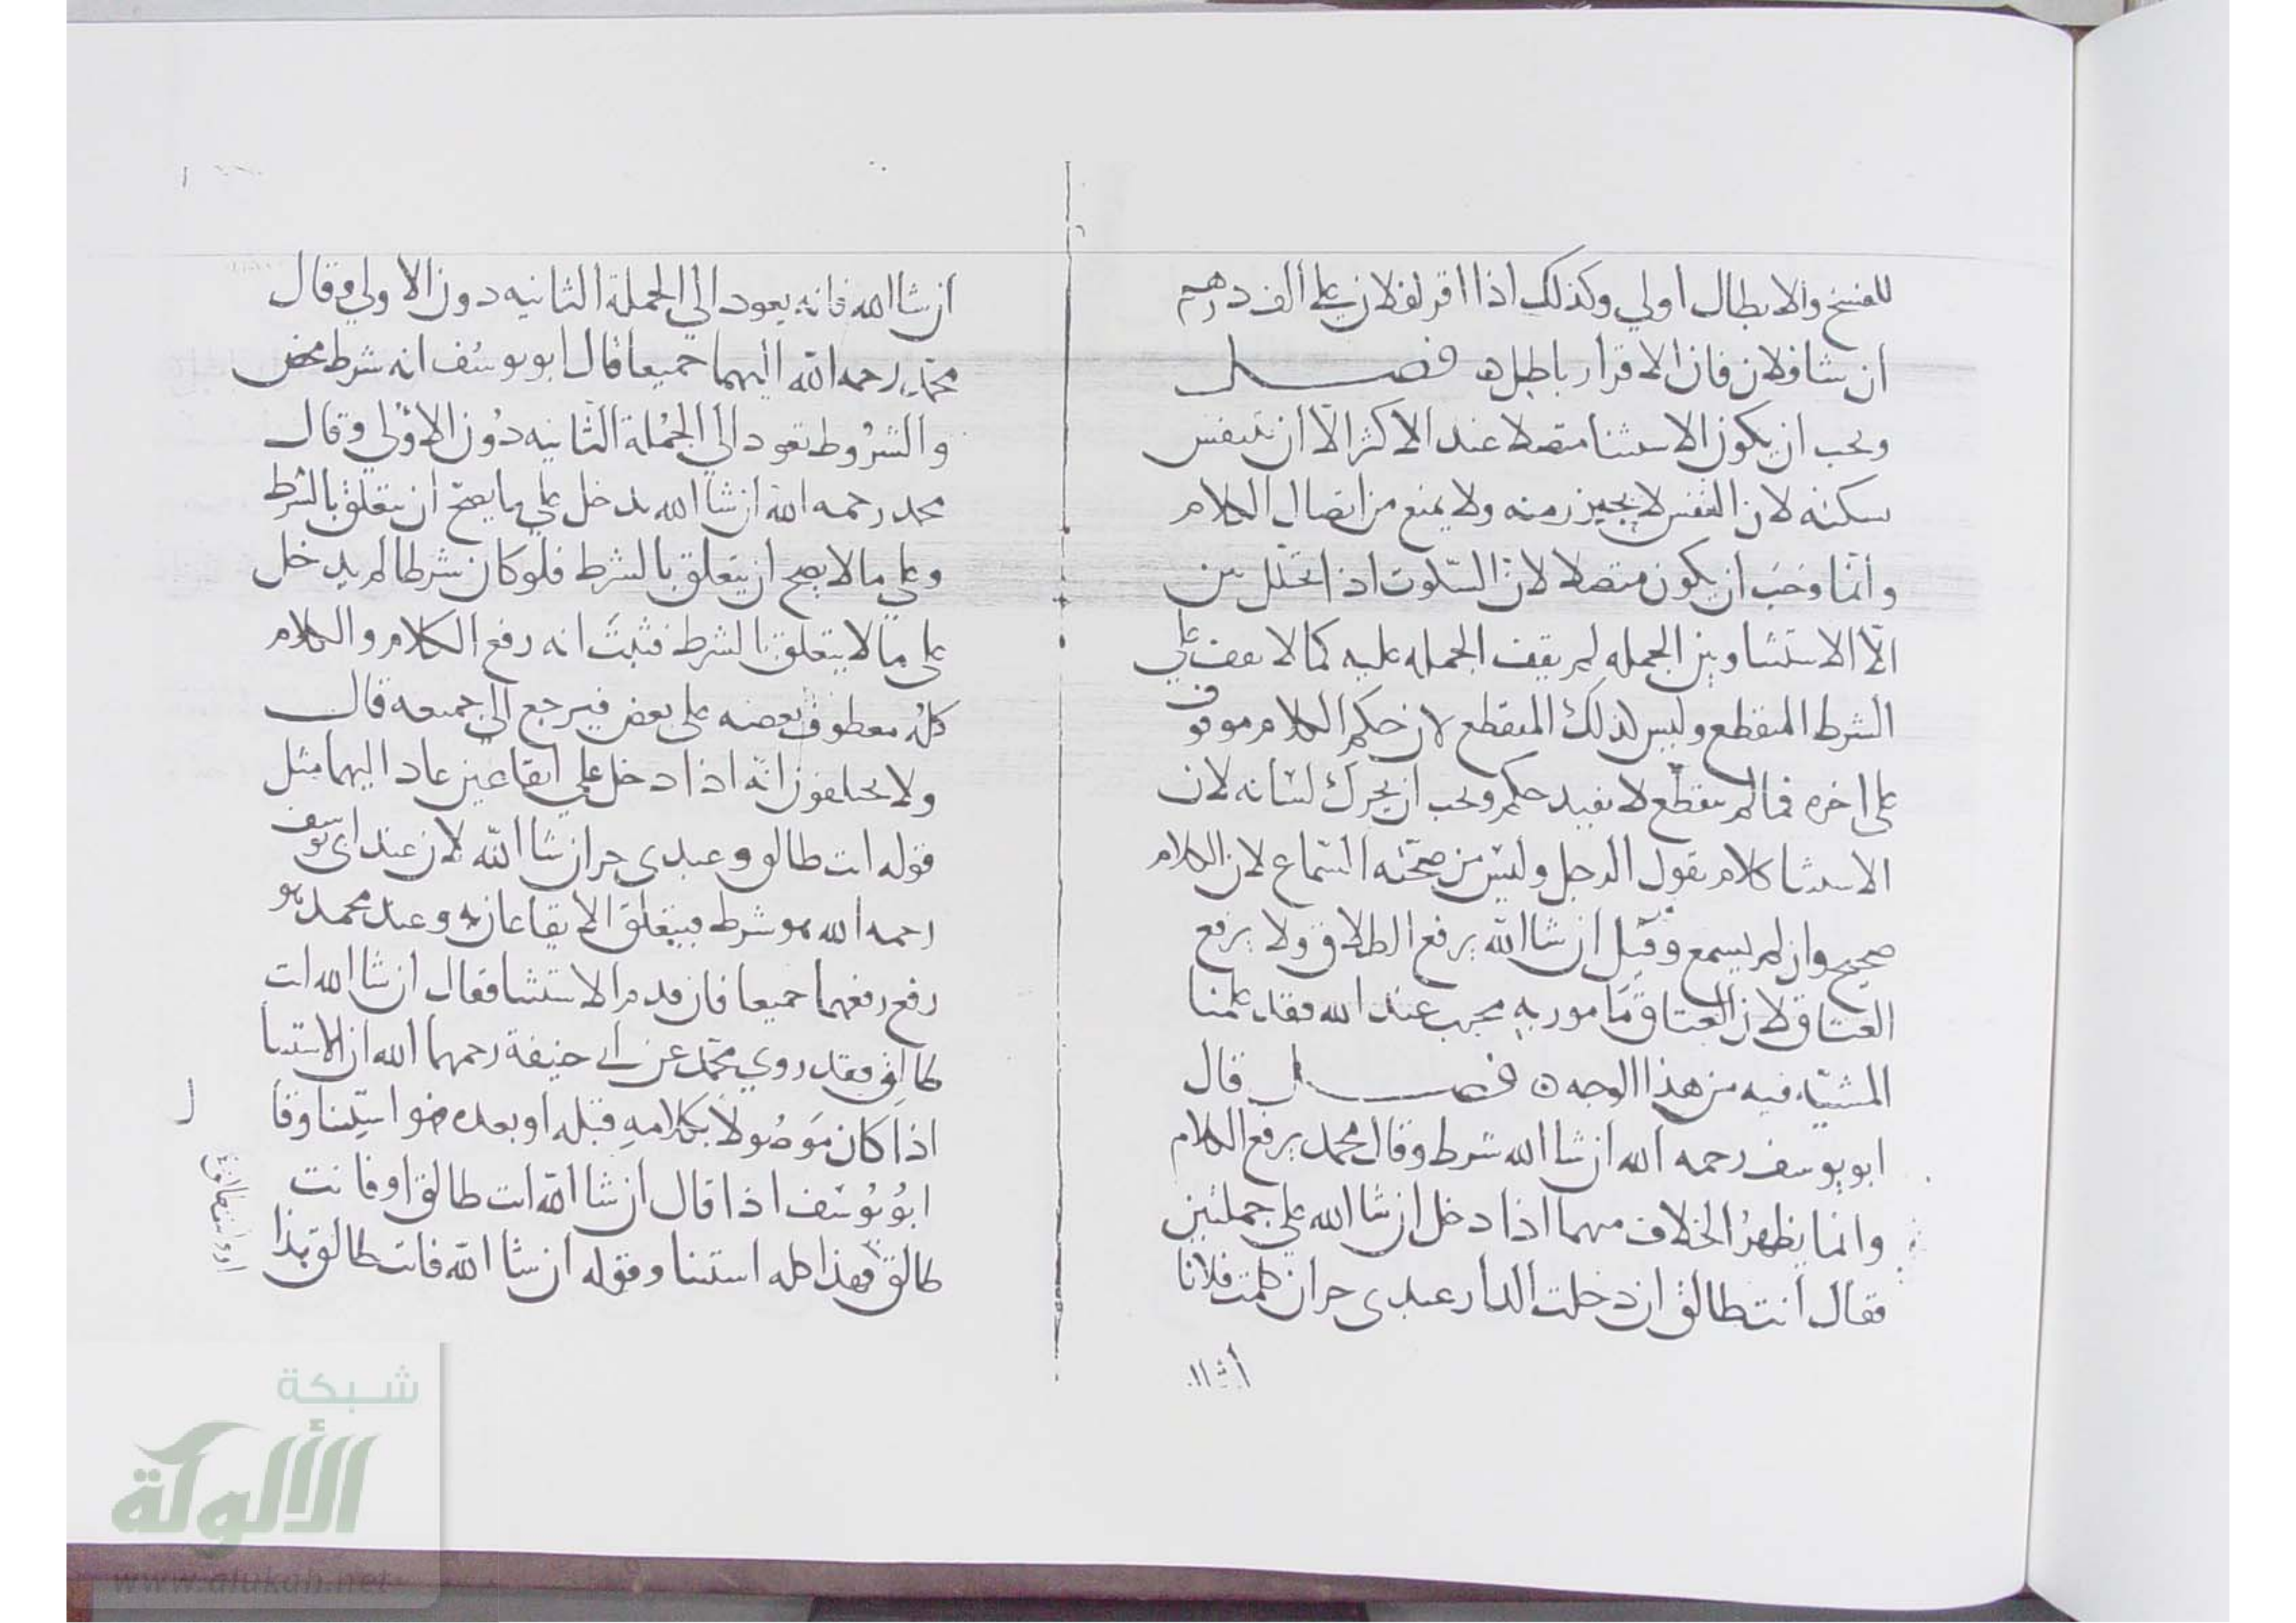 للفسخ والابطال اولي وكذلك اذا اقر لفلان علي الف درهم
ان شا فلان فان الاقرار باطل ه فصل
ويجب ان يكون الاستثنا متصلا عند الاكثر الا ان يتنفس
سكنه لان النفس لا يجيز زمنه ولا يمنع من اتصال الكلام
وانما وجب ان يكون متصلا لان السكوت اذا تخلل بين
الا الاستثنا وبين الجمله لم يقف الجمله عليه كما لا يقف علي
الشرط المنقطع وليس كذلك المنقطع لان حكم الكلام موقوف
علي اخره فما لم ينقطع لا يفيد حكم ويجب ان يحرك لسانه لان
الاستثنا كلام يقول الرجل وليس من صحته السماع لان الكلام
صحيح وان لم يسمع وقيل ان شا الله يرفع الطلاق ولا يرفع
العتاق لان العتاق مامور به محبب عند الله فقد علمنا
المشيّه فيه من هذا الوجه ه فصل قال
ابو يوسف رحمه الله ان شا الله شرط وقال محمد يرفع الكلام
وانما يظهر الخلاف منهما اذا دخل ان شا الله علي جملتين
فقال انت طالق ان دخلت الدار عبدي حر ان كلمت فلانا
ان شا ا
ان شا الله فانه يعود الي الجملة الثانيه دون الاولي وقال
محمد رحمه الله اليهما جميعا قال ابو يوسف انه شرط محض
والشروط تعود الي الجملة الثانيه دون الاولي وقال
محمد رحمه الله ان شا الله يدخل علي ما يصح ان يتعلق بالشرط
وعلي ما لا يصح ان يتعلق بالشرط فلو كان شرطا لم يدخل
علي ما لا يتعلق بالشرط فثبت انه رفع الكلام والكلام
كله معطوف بعضه علي بعض فيرجع الي جميعه قال
ولا يختلفون انه اذا دخل علي ايقاعين عاد اليهما مثل
قوله انت طالق وعبدي حر ان شا الله لان عند ابي يوسف
رحمه الله هو شرط فيتعلق الايقاعان به وعند محمد هو
رفع رفعهما جميعا فان قدم الاستثنا فقال ان شا الله انت
طالق فقد روي محمد عن ابي حنيفة رحمهما الله ان الاستثنا
اذا كان موصولا بكلامه قبله او بعده فهو استثنا وقا
ل
ابو يوسف اذا قال ان شا الله انت طالق او فانت
طالق فهذا كله استثنا وقوله ان شا الله فانت طالق بذا
شبكة
الألوكة
www.alukah.net